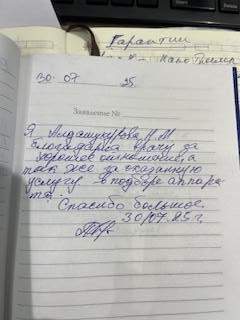 Гарантии
30. 07 25
Заявление №
Я Алдашукурова Н. М
благодарна врачу за
хорошее отношение, а
так же за оказанную
услугу в подборе аппара-
та.
Спасибо большое.
30/07.25 г.